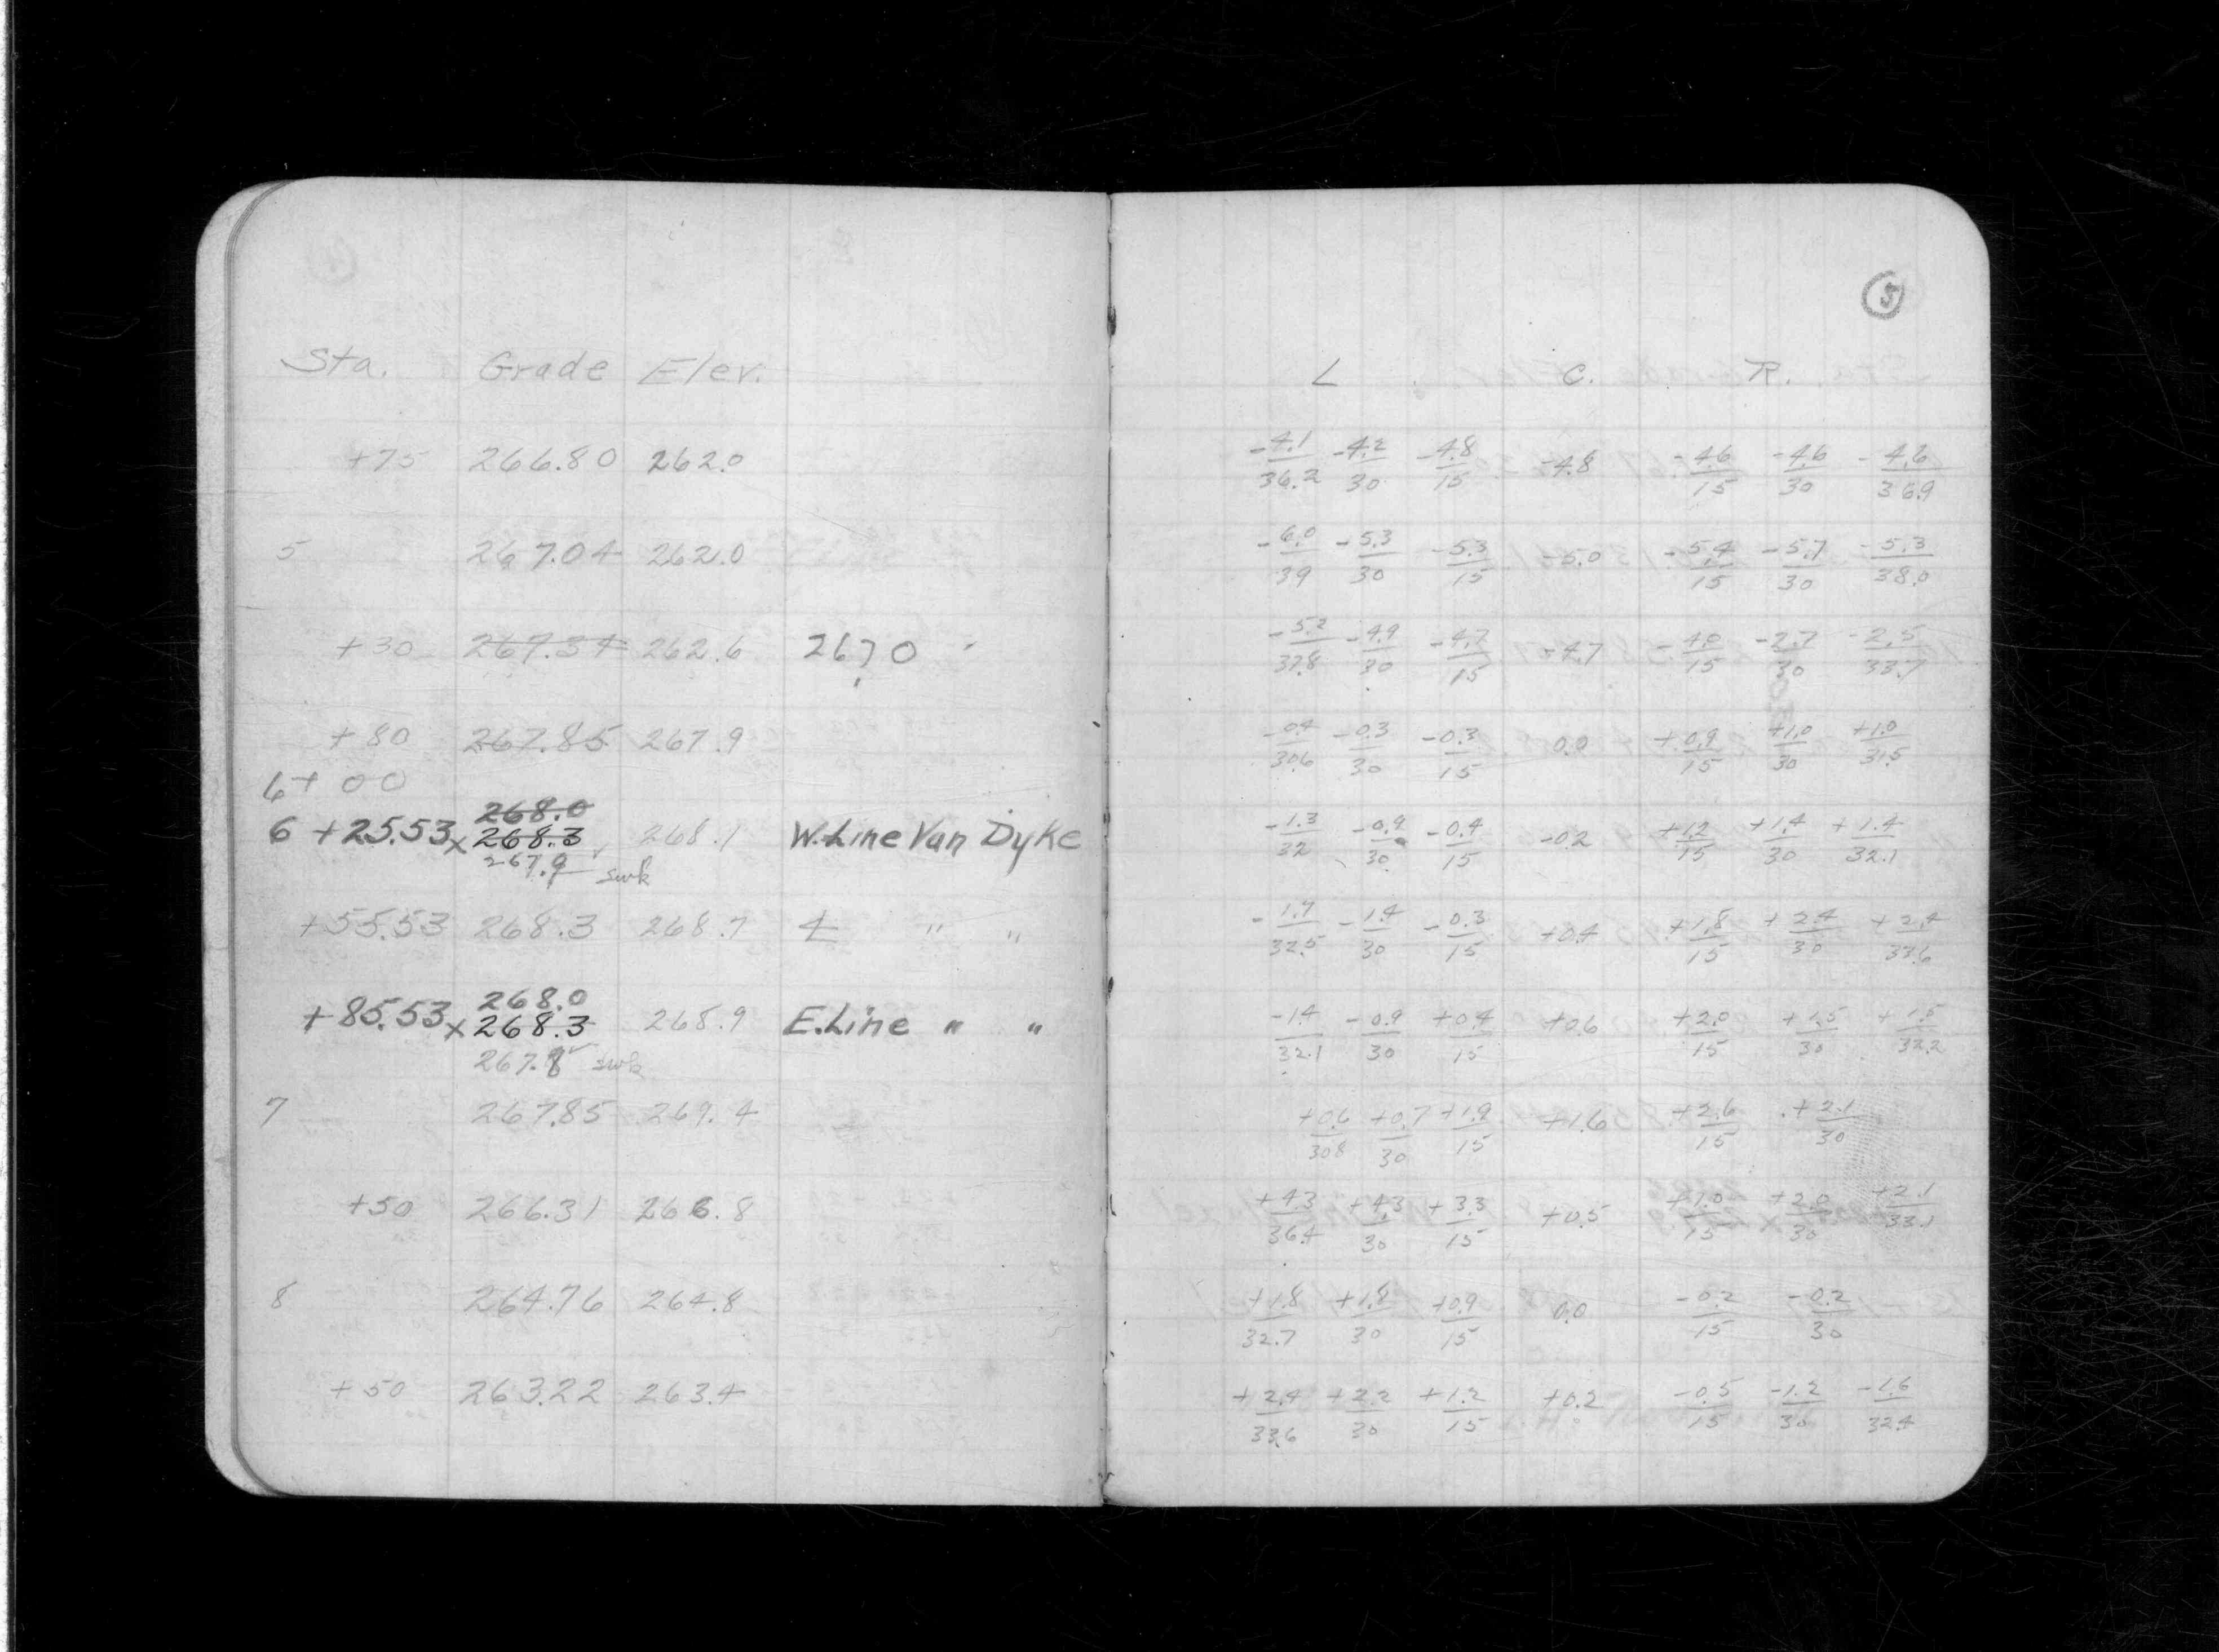 5
Sta. Grade Elev. L C. R.
+75 266.80 262.0 -4.1/36.2 -4.2/30 -4.8/15 -4.8 -4.6/15 -4.6/30 -4.6/36.9
5 267.04 262.0 -6.0/39 -5.3/30 -5.3/15 -5.0 -5.4/15 -5.7/30 -5.3/38.0
+30 267.34 262.6 267.0 -5.2/37.8 -4.9/30 -4.7/15 -4.7 -4.0/15 -2.7/30 -2.5/33.7
+80 267.85 267.9 -0.4/30.6 -0.3/30 -0.3/15 0.0 +0.9/15 +1.0/30 +1.0/31.5
6+00
268.0
6 +25.53 x 268.3 268.1 W.Line Van Dyke -1.3/32 -0.9/30 -0.4/15 -0.2 +1.2/15 +1.4/30 +1.4/32.1
267.9 swk
+55.53 268.3 268.7 ℄ " " -1.7/32.5 -1.4/30 -0.3/15 +0.4 +1.8/15 +2.4/30 +2.4/33.6
268.0
+85.53 x 268.3 268.9 E.Line " " -1.4/32.1 -0.9/30 +0.4/15 +0.6 +2.0/15 +1.5/30 +1.5/32.2
267.8 swk
7 267.85 269.4 +0.6/30.8 +0.7/30 +1.9/15 +1.6 +2.6/15 +2.1/30
+50 266.31 266.8 +4.3/36.4 +4.3/30 +3.3/15 +0.5 +1.0/15 +2.0/30 +2.1/33.1
8 264.76 264.8 +1.8/32.7 +1.8/30 +0.9/15 0.0 -0.2/15 -0.2/30
+50 263.22 263.4 +2.4/33.6 +2.2/30 +1.2/15 +0.2 -0.5/15 -1.2/30 -1.6/32.4